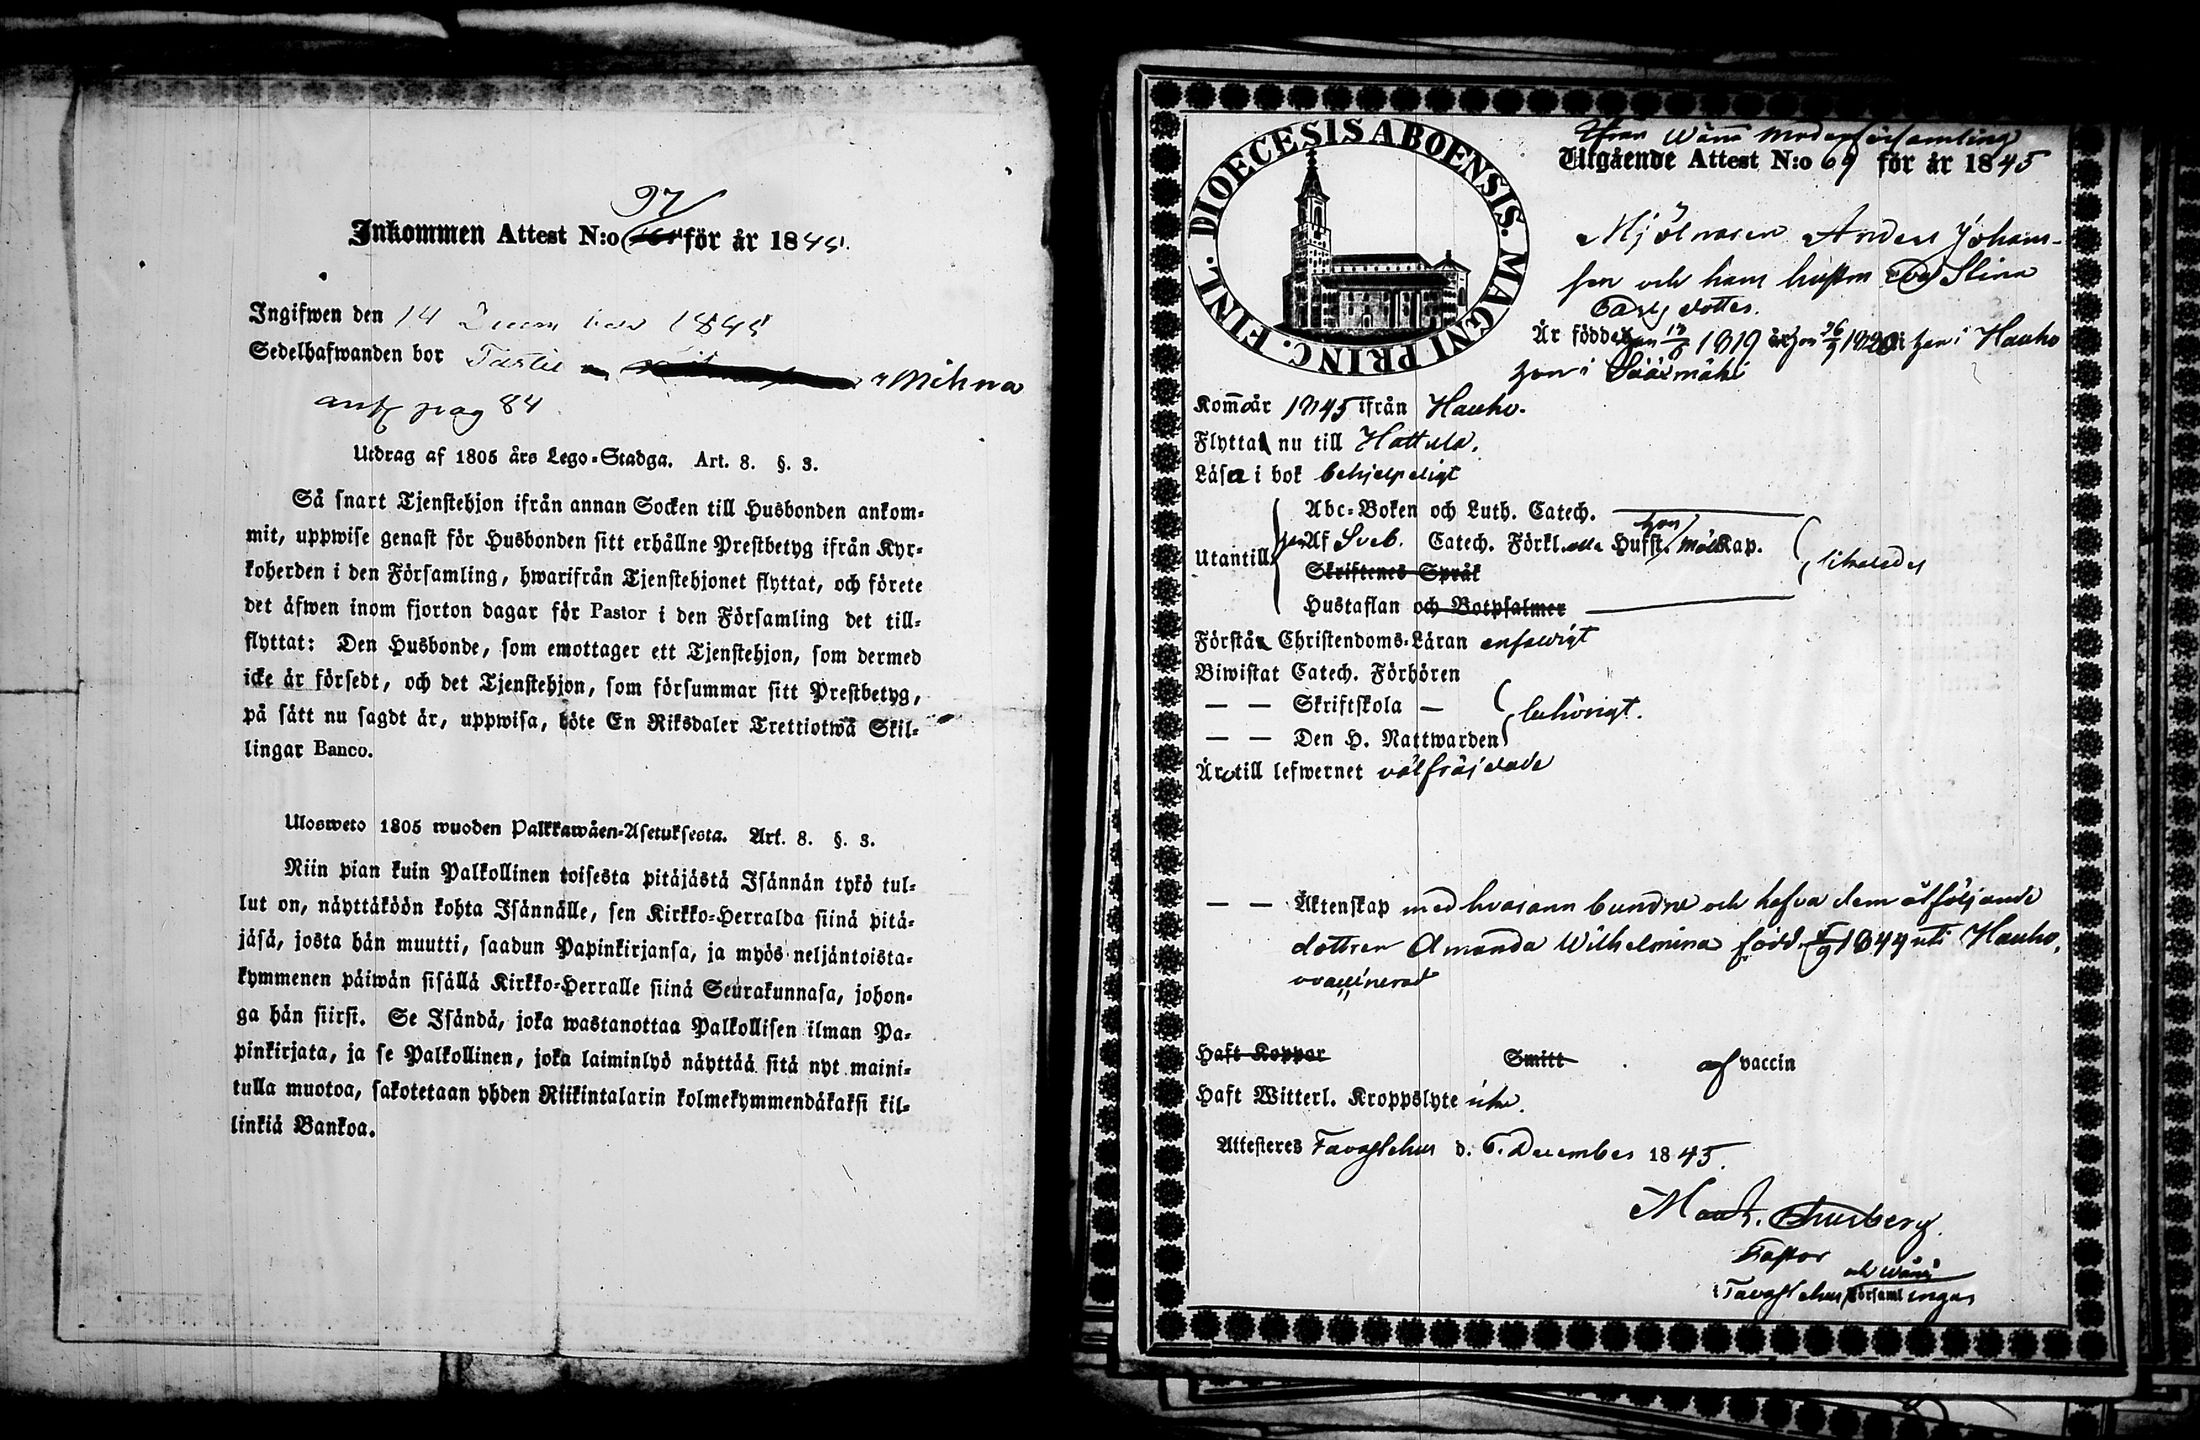 97
Inkommen Attest N:o för år 1845.
Ingifwen den 14 December 1845
Sedelhafwanden bor Mihna
pag 84
Utdrag af 1805 års Lego-Stadga. Art. 8. §. 3.
Så snart Tjenstehjon ifrån annan Socken till Husbonden ankom-
mit, uppwise genast för Husbonden sitt erhållne Prestbetyg ifrån Kyr-
koherden i den Församling, hwarifrån Tjenstehjonet flyttat, och förete
det äfwen inom fjorton dagar för Pastor i den Församling det till-
flyttat: Den Husbonde, som emottager ett Tjenstehjon, som dermed
icke är försedt, och det Tjenstehjon, som försummar sitt Prestbetyg,
på sätt nu sagdt är, uppwisa, böte En Riksdaler Trettiotwå Skil-
lingar Banco.
Ulosweto 1805 wuoden Palkkawäen-Asetuksesta. Art. 8. §. 3.
Niin pian kuin Palkollinen toisesta pitäjästä Isännän tykö tul-
lut on, näyttäköön kohta Isännälle, sen Kirkko-Herralda siinä pitä-
jäsä, josta hän muutti, saadun Papinkirjansa, ja myös neljäntoista-
kymmenen päiwän sisällä Kirkko-Herralle siinä Seurakunnasa, johon-
ga hän siirsi. Se Isändä, joka wastanottaa Palkollisen ilman Pa-
pinkirjata, ja se Palkollinen, joka laiminlyö näyttää sitä nyt maini-
tulla muotoa, sakotetaan yhden Riikintalarin kolmekymmendäkaksi kil-
linkiä Bankoa.
DIOECESIS ABOENSIS. MAGNI PRINC. FINL.
Ifrån Wånå Moderförsamling
Utgående Attest N:o 69 för år 1845
Mjölnaren Anders Johans-
son och hans hustru Eva Stina
dotter.
Är född 1819 1820 han i Hauho
hon i Säärmäki
Kom år 1845 ifrån Hauho.
Flytta nu till Hattula.
Läsa i bok behjelpeligt
Abc-Boken och Luth. Catech.
Utantill Af Sveb. Catech. Förkl. Hufst. Kap. likaledes
Skriftenes Språk
Hustaflan och Botpsalmer
Förstå Christendoms-Läran enfaldigt
Biwistat Catech. Förhören
— — Skriftskola — behörigt.
— — Den H. Nattwarden
Äro till lefwernet välfräjdade
— — Äktenskap med hvarann bundne och hafva dem åtföljande
dottren Amanda Wilhelmina född 1844 uti Hauho,
vaccinerad
Haft Koppor Smitt af vaccin
Haft Witterl. Kroppslyte icke.
Attesteres Tavastehus d. 6. December 1845.
Pastor
och Wånå
i Tavastehus Församlingar